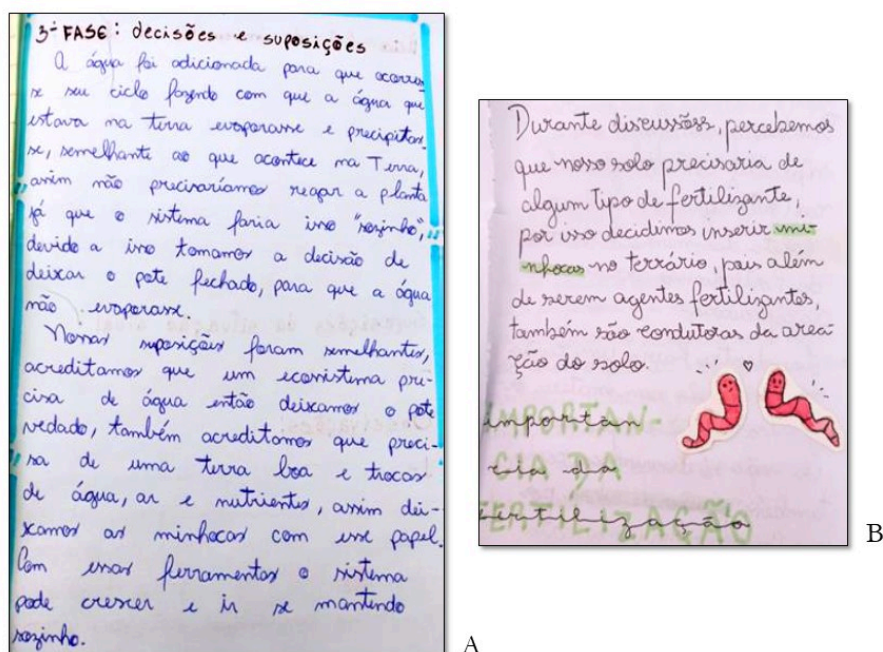 3ª FASE: decisões e suposições
A água foi adicionada para que ocorres
se seu ciclo fazendo com que a água que
estava na terra evaporasse e precipitas-
se, semelhante ao que acontece na Terra,
assim não precisaríamos regar a planta
já que o sistema faria isso "sozinho",
devido a isso tomamos a decisão de
deixar o pote fechado, para que a água
não evaporasse.
Nossas suposições foram semelhantes,
acreditamos que um ecossistema pre-
cisa de água então deixamos o pote
vedado, também acreditamos que preci-
sa de uma terra boa e trocas
de água, ar e nutrientes, assim dei-
xamos as minhocas com esse papel.
Com essas ferramentas o sistema
pode crescer e ir se mantendo
sozinho.
A
Durante discussões, percebemos
que nosso solo precisaria de
algum tipo de fertilizante,
por isso decidimos inserir mi-
nhocas no terrário, pois além
de serem agentes fertilizantes,
também são condutoras da area-
ção do solo.
IMPORTAN-
CIA DA
FERTILIZAÇÃO
B